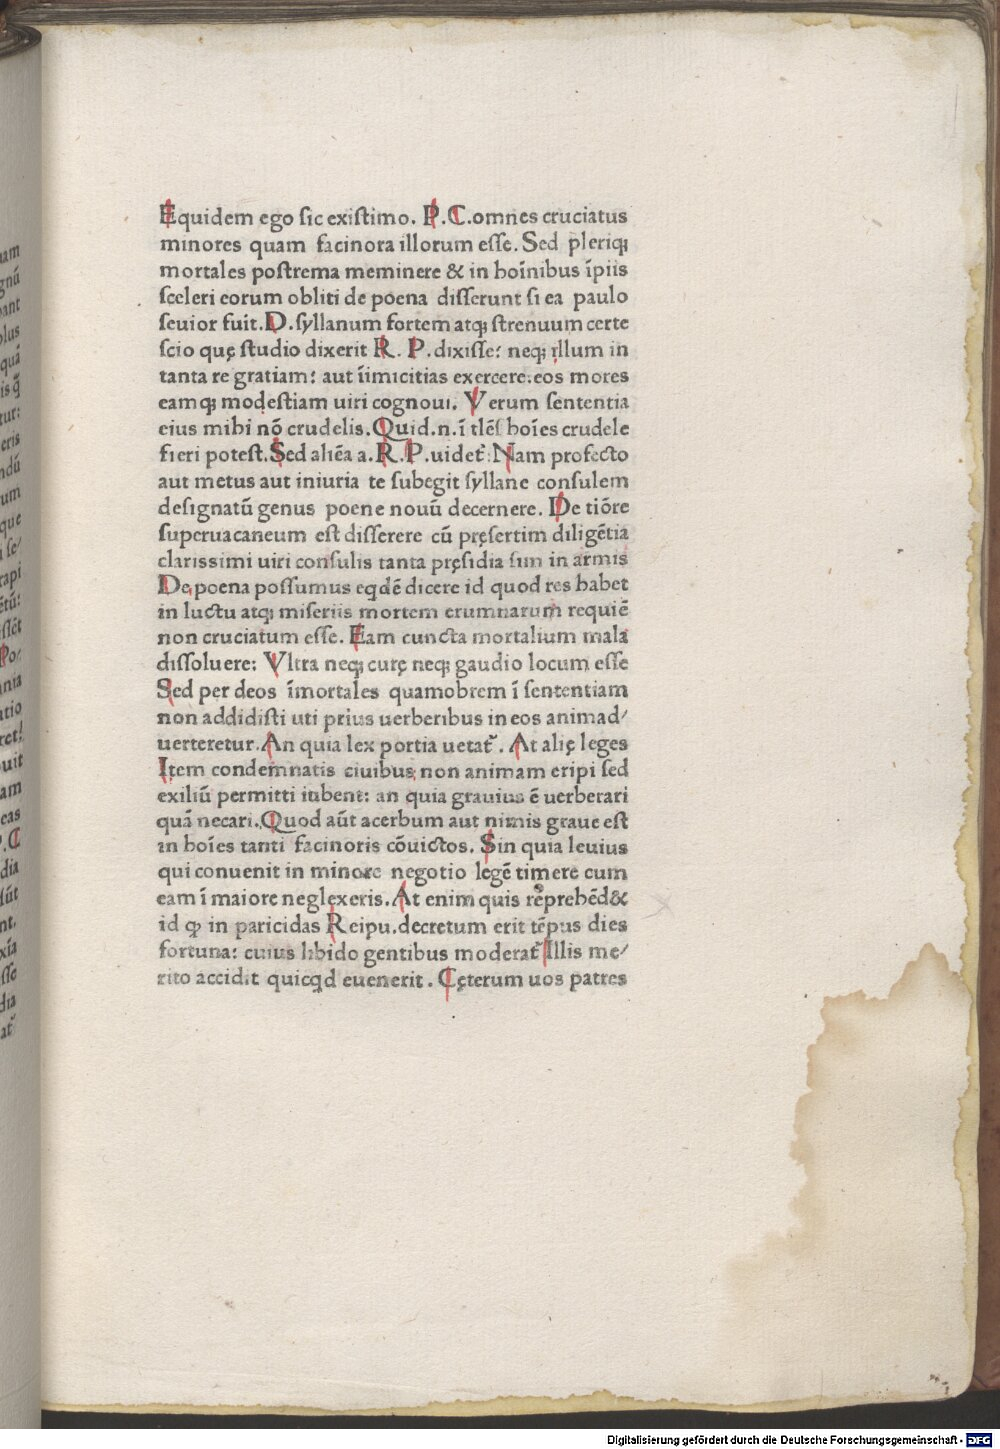 Equidem ego sic existimo. P.C.omnes cruciatus
minores quam facinora illorum esse. Sed pleriqꝫ
mortales postrema meminere & in hoīnibus īpiis
sceleri eorum obliti de poena disserunt si ea paulo
seuior fuit.D.syllanum fortem atqꝫ strenuum certe
scio quę studio dixerit R. P. dixisse: neqꝫ illum in
tanta re gratiam: aut īimicitias exercere.eos mores
eamqꝫ modestiam uiri cognoui. Verum sententia
eius mihi nō crudelis.Quid.n.ī tlēs hoīes crudele
fieri potest.Sed aliēa a.R.P.uidet᷑:Nam profecto
aut metus aut iniuria te subegit syllane consulem
designatū genus poene nouū decernere. De tiōre
superuacaneum est disserere cū pręsertim diligētia
clarissimi uiri consulis tanta pręsidia sun in armis
De poena possumus eqdē dicere id quod res habet
in luctu atqꝫ miseriis mortem erumnarum requiē
non cruciatum esse. Eam cuncta mortalium mala
dissoluere: Vltra neqꝫ curę neqꝫ gaudio locum esse
Sed per deos īmortales quamobrem ī sententiam
non addidisti uti prius uerberibus in eos animad/
uerteretur.An quia lex portia uetat᷑. At alię leges
Item condemnatis ciuibus non animam eripi sed
exiliū permitti iubent: an quia grauius ē uerberari
quā necari.Quod aūt acerbum aut nimis graue est
in hoīes tanti facinoris cōuictos. Sin quia leuius
qui conuenit in minore negotio legē timere cum
eam ī maiore neglexeris.At enim quis rēprehēd&
id ꝙ in paricidas Reipu.decretum erit tēpus dies
fortuna: cuius libido gentibus moderat᷑ Illis me/
rito accidit quicqd euenerit. Cęterum uos patres
Digitalisierung gefördert durch die Deutsche Forschungsgemeinschaft - DFG